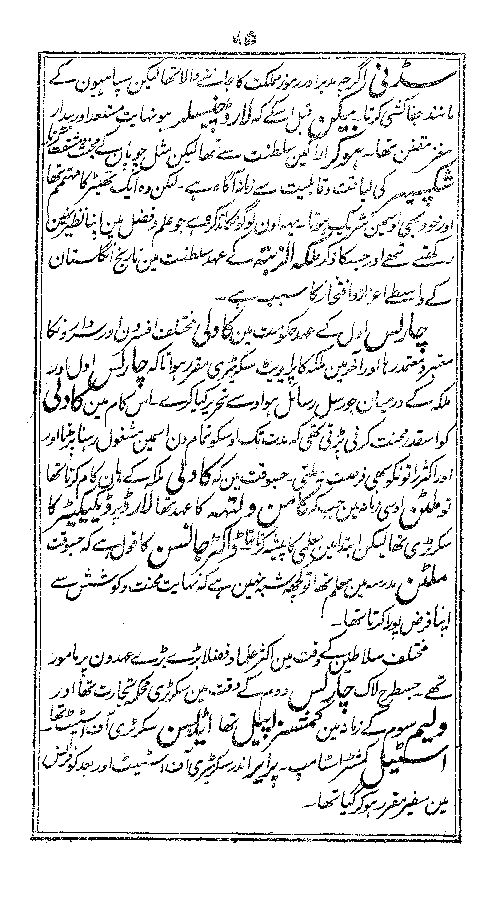 ۸۵
سڈنی اگرچہ مدبر اور رموز مملکت کا جاننے والا تھا لیکن سپاہیون کے
مانند جفاکشی کرتا۔ بیکن قبل اسکے کہ لارڈ چنسیلر ہو نہایت مستعد اور بیدار
مغز مقنن تھا۔ ہوکر اراکین سلطنت سے تھا لیکن مثل چوپان کے محنت مشقت کرتا
شکسپیر کی لیاقت و قابلیت سے زمانہ آگاہ ہے۔ لیکن وہ ایک تھیٹر کا مہتمم تھا
اور خود بھی اوسمین شریک ہوتا۔ یہہ اون لوگونکا ذکر ہے جو علم و فضل مین اپنا نظیر نہین
رکھتے تھے اور جسکا ذکر ملکہ الزبتہ کے عہد سلطنت مین تاریخ انگلستان
کے واسطے اعزاز و افتخار کا سبب ہے۔
چارلس اول کے عہد حکومت مین کاولی مختلف افسرون اور سردارونکا
معتبر و معتمد رہا اور آخر مین ملکہ کا پرایوٹ سکرٹری مقرر ہوا تاکہ چارلس اول اور
ملکہ کے درمیان جو رسل رسائل ہو اوسے تحریر کیا کرے۔ اس کام مین کاولی
کو اسقدر محنت کرنی پڑتی تھی کہ مدت تک اوسکو تمام دن اسمین مشغول رہنا پڑتا اور
اور اکثر راتونکو بھی فرصت نہ ملتی۔ جسوقت مین کہ کاولی ملکہ کے ہان کام کرتا تھا
تو ملٹن اوسی زمانہ مین جب کہ کامن ولتھہ کا عہد تھا لارڈ پروٹیکٹر کا
سکرٹری تھا لیکن ابتدا مین معلمی کا پیشہ کرتا تھا ڈاکٹر جانسن کا قول ہے کہ جسوقت
ملٹن مدرسہ مین معلم تھا تو کچھہ شبہ نہین ہے کہ نہایت محنت و کوشش سے
اپنا فرض پورا کرتا تھا۔
مختلف سلاطین کے وقت مین اکثر علما و فضلا بڑے بڑے عہدون پر مامور
تھے۔ جسطرح لاک چارلس دوم کے وقت مین سکرٹری محکمہ تجارت تھا اور
ولیم سوم کے زمانہ مین کمشنر اپیل تھا ایڈیسن سکرٹری آف اسٹیٹ تھا۔
اسٹیل کمشنر اسٹامپ۔ پرایر انڈر سکرٹری آف اسٹیٹ اور بعد کو فرانس
مین سفیر مقرر ہو کر گیا تھا۔